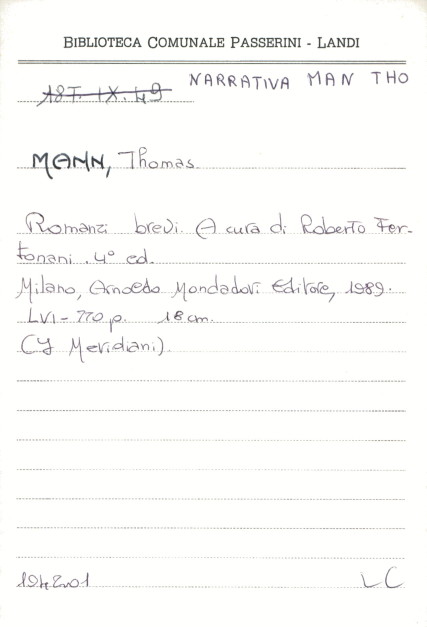 BIBLIOTECA COMUNALE PASSERINI - LANDI
18T. IX. 49 NARRATIVA MAN THO
MANN, Thomas.
Romanzi brevi. A cura di Roberto Fer-
tonani. 4° ed.
Milano, Arnoldo Mondadori Editore, 1989.
LVI - 770 p. 18 cm.
(I Meridiani).
LC